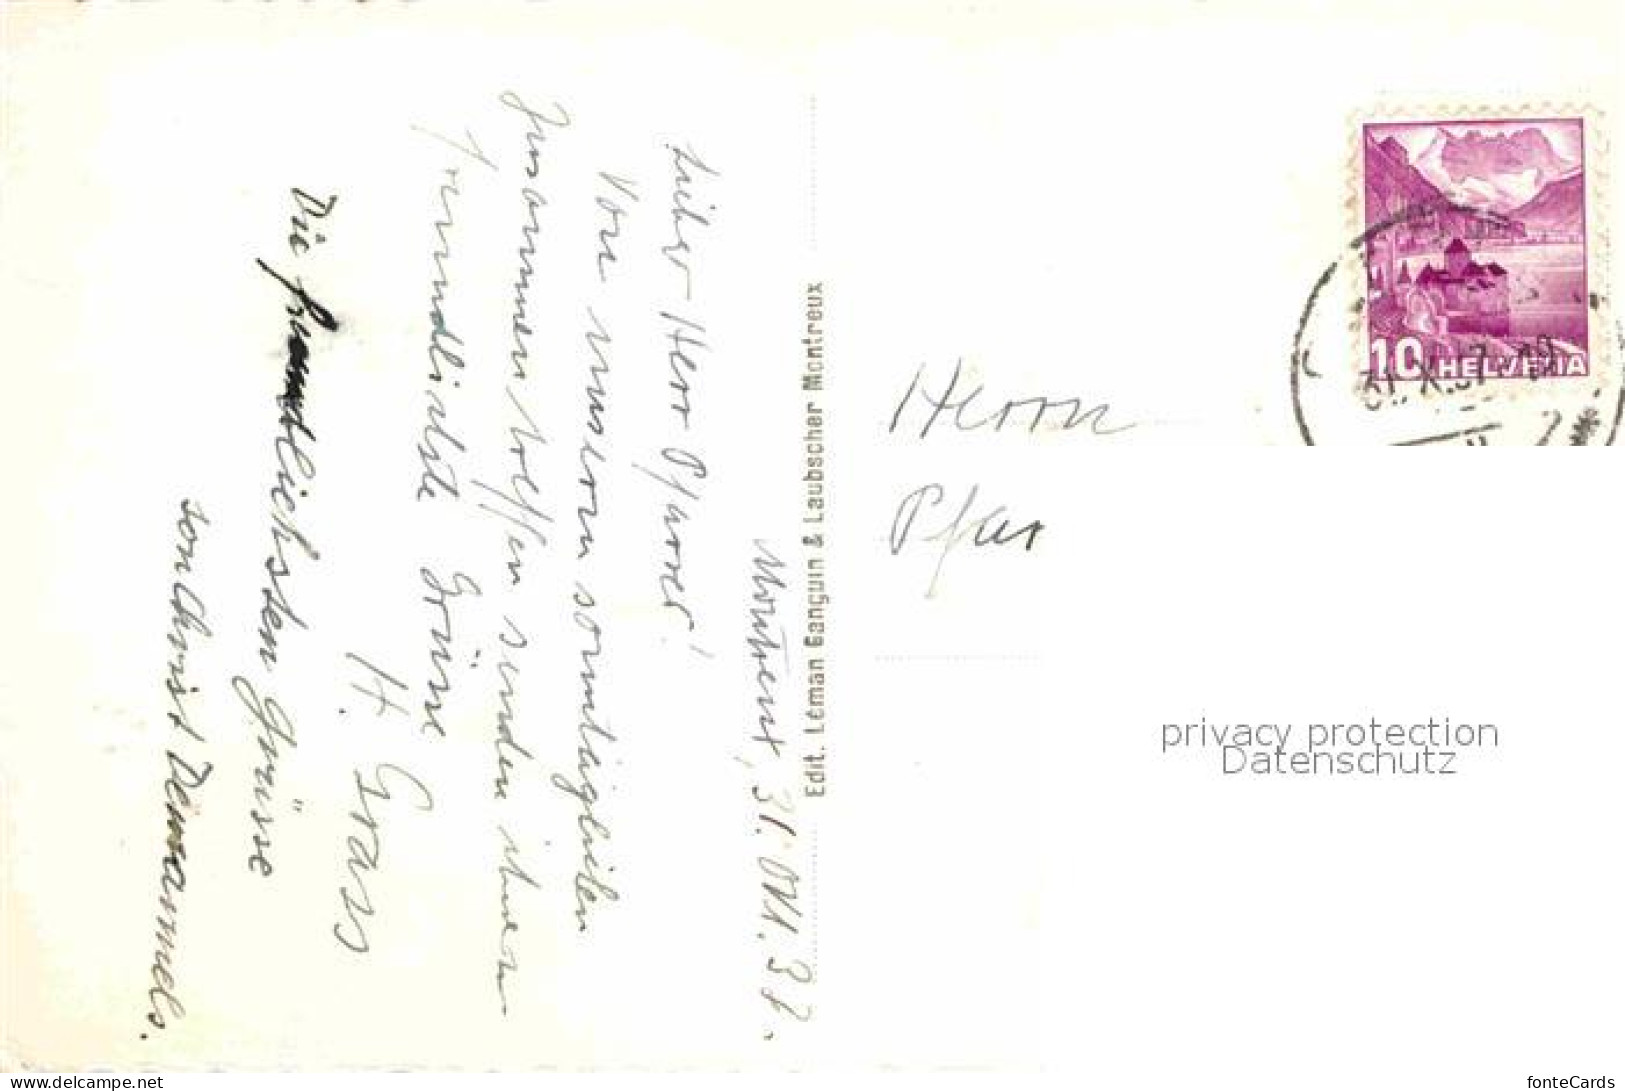 Montreux, 31. Okt. 37.
Lieber Herr Pfarrer!
Von unserm sonntäglichen
Zusammentreffen senden ihnen
freundlichste Grüsse
H. Grass
Die freundlichsten Grüsse
Edit. Léman Ganguin & Laubscher Montreux
10 HELVETIA
31. X. 37
Herrn
Pfar
privacy protection
Datenschutz
www.delcampe.net
fonteCards